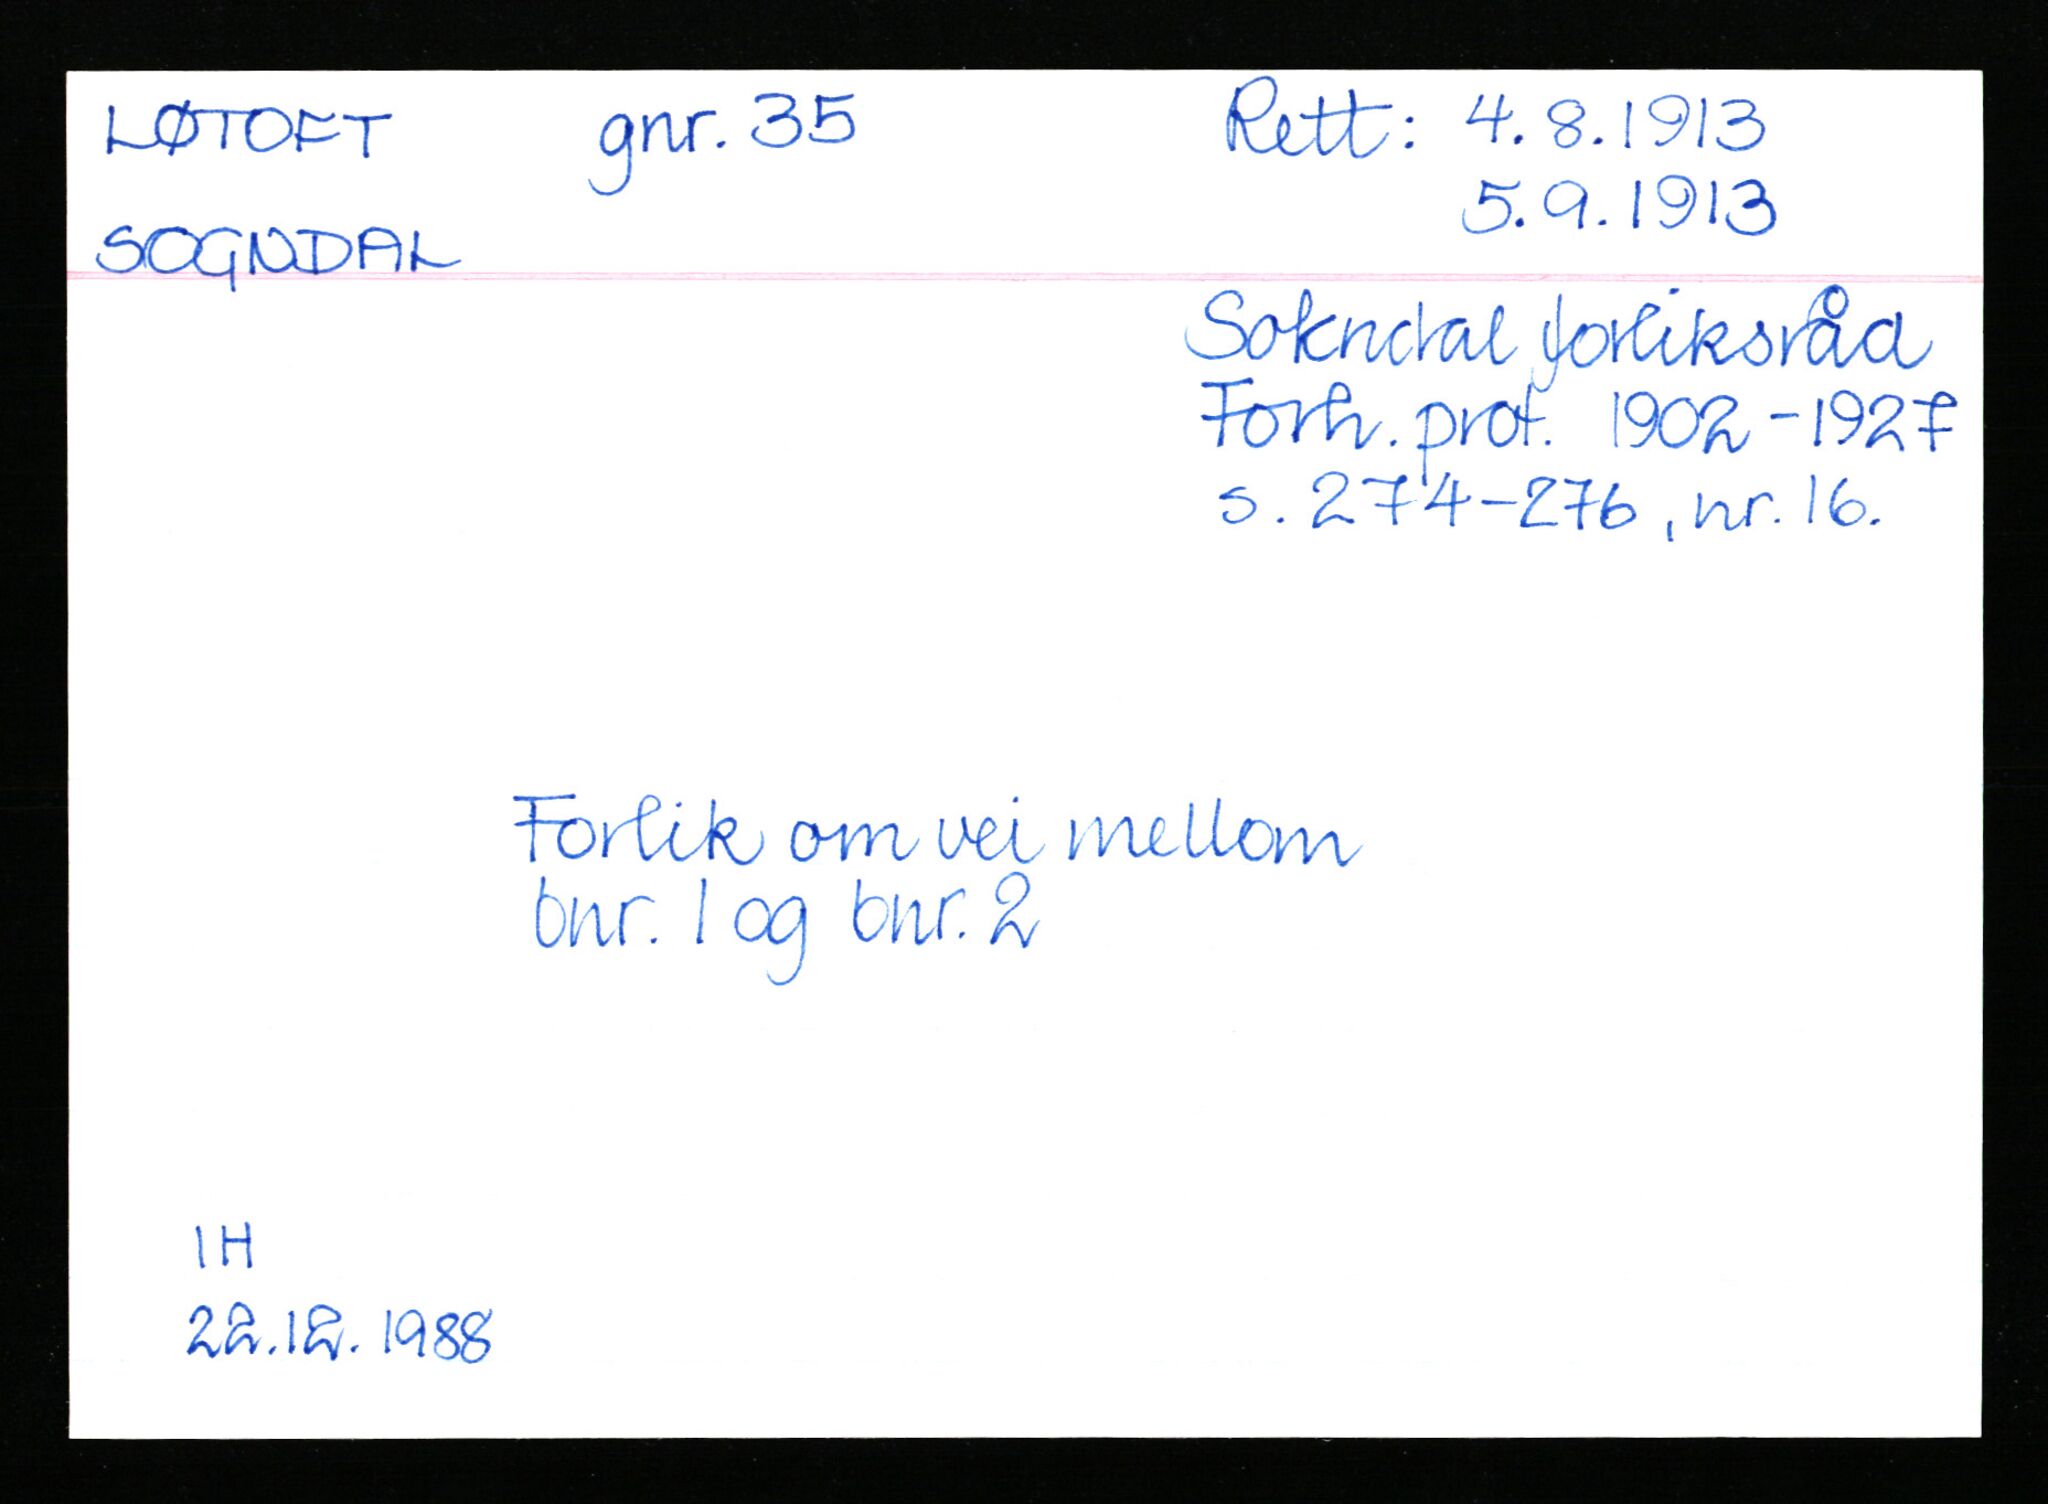 LØTOFT gnr. 35 Rett: 4.8.1913
5.9.1913
SOGNDAL
Sokndal forliksråd
Forh. prot. 1902-1927
s. 274-276, nr. 16.
Forlik om vei mellom
bnr. 1 og bnr. 2
IH
22.12.1988